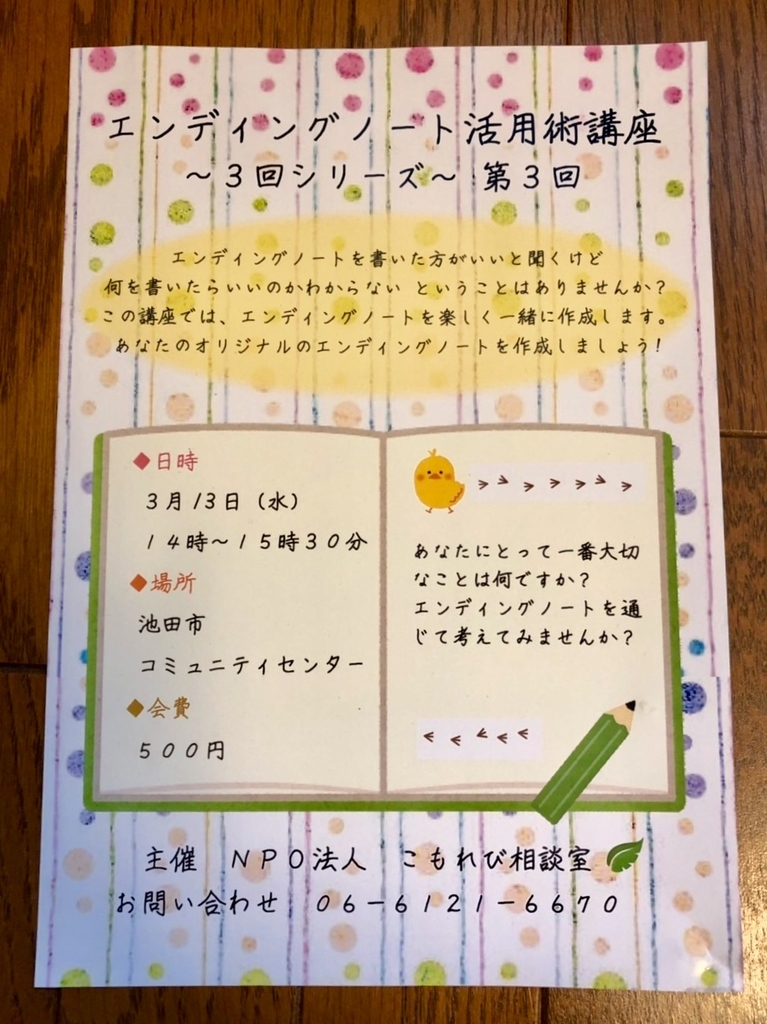 エンディングノート活用術講座
～３回シリーズ～ 第３回
エンディングノートを書いた方がいいと聞くけど
何を書いたらいいのかわからない ということはありませんか？
この講座では、エンディングノートを楽しく一緒に作成します。
あなたのオリジナルのエンディングノートを作成しましょう！
◆日時
３月１３日（水）
１４時～１５時３０分
◆場所
池田市
コミュニティセンター
◆会費
５００円
あなたにとって一番大切
なことは何ですか？
エンディングノートを通
じて考えてみませんか？
主催　ＮＰＯ法人　こもれび相談室
お問い合わせ　０６－６１２１－６６７０